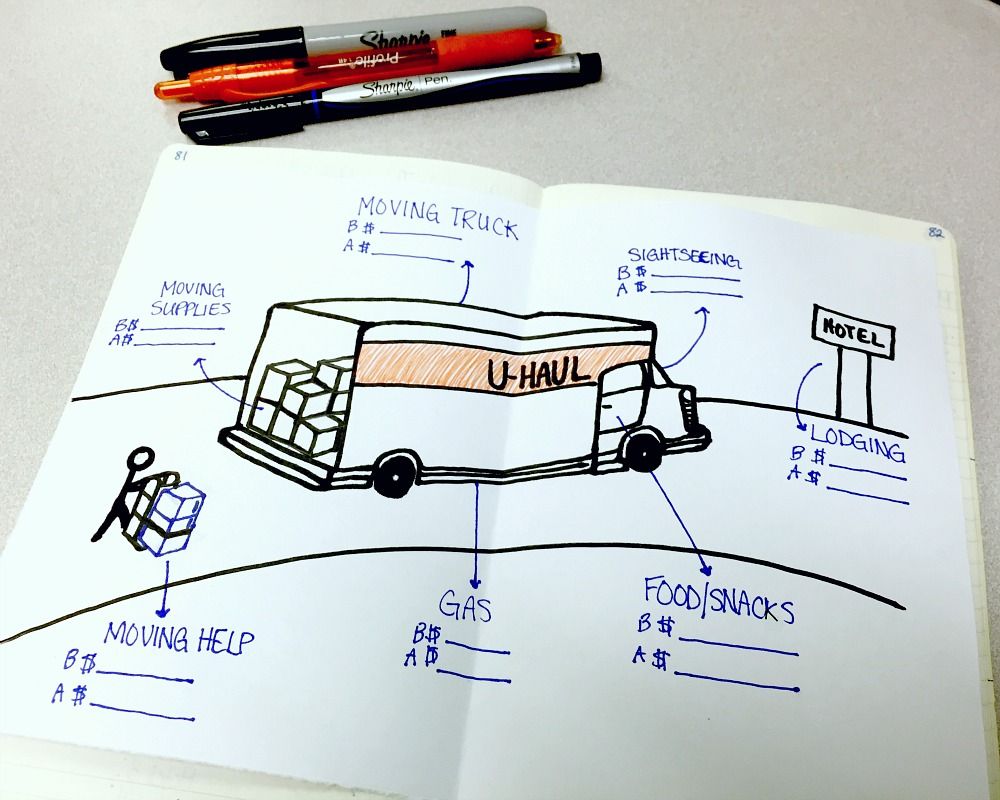 Sharpie FINE
Profile 1.4M
Sharpie Pen
81
82
MOVING TRUCK
B $
A $
SIGHTSEEING
B $
A $
MOVING
SUPPLIES
B $
A $
MOTEL
U-HAUL
LODGING
B $
A $
MOVING HELP
B $
A $
GAS
B $
A $
FOOD/SNACKS
B $
A $